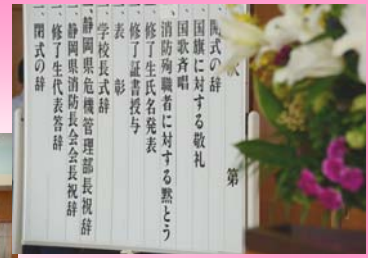 次 第
一、開式の辞
一、国旗に対する敬礼
一、国歌斉唱
一、消防殉職者に対する黙とう
一、修了生氏名発表
一、修了証書授与
一、表 彰
一、学校長式辞
一、静岡県危機管理部長祝辞
一、静岡県消防長会会長祝辞
一、修了生代表答辞
一、閉式の辞